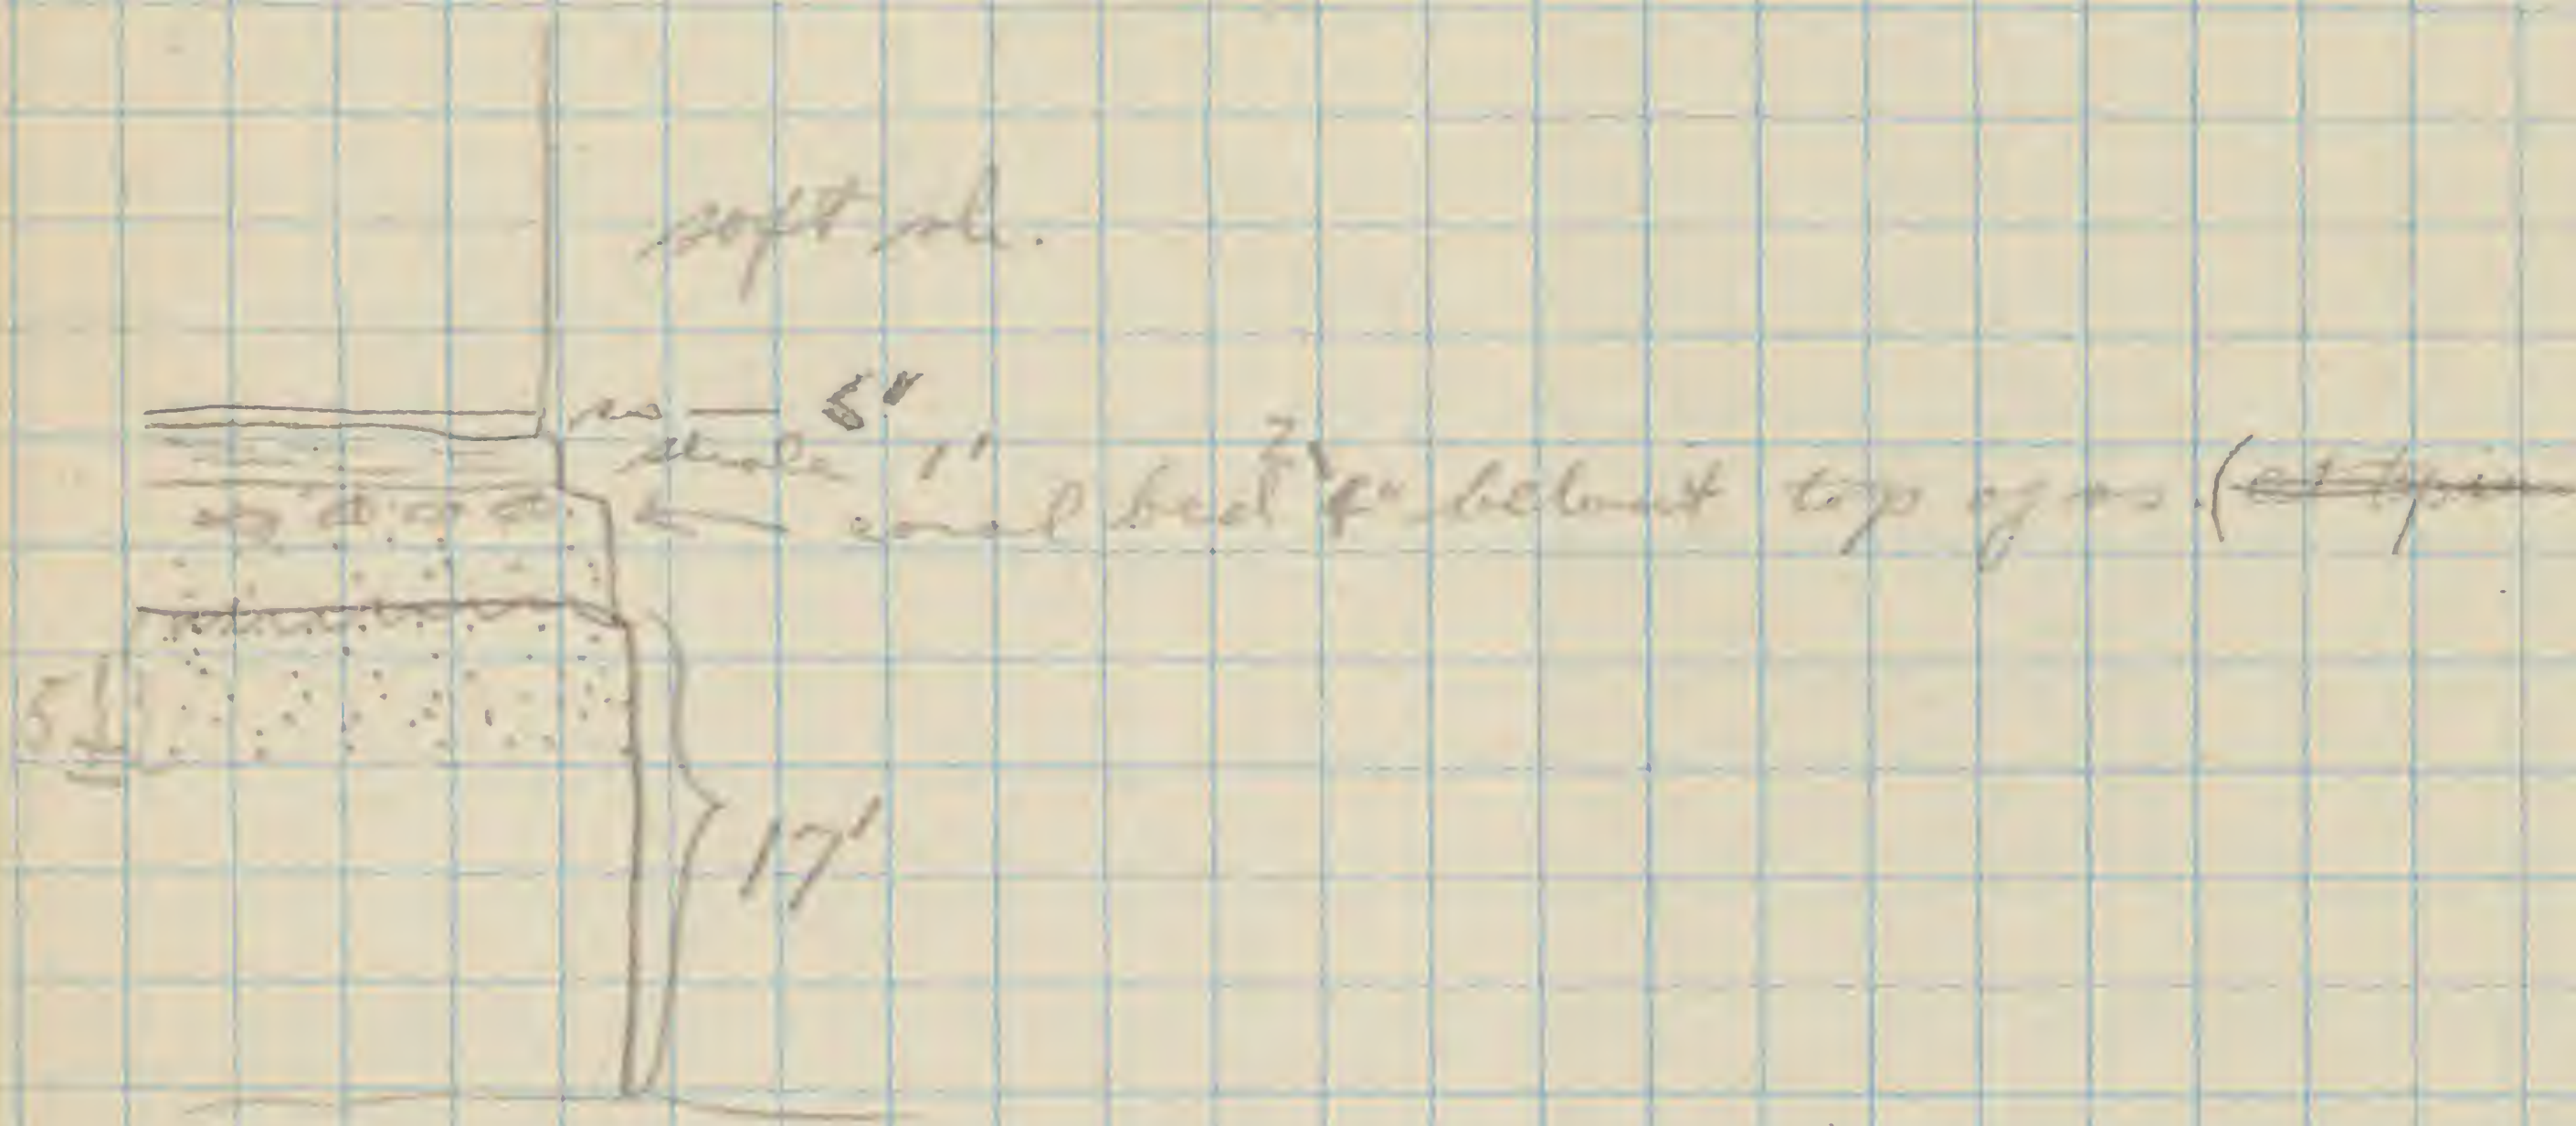 soft sh.
ss — 5"
shale 1'
coral bed 2' 4" below top of ss. (
5
17'